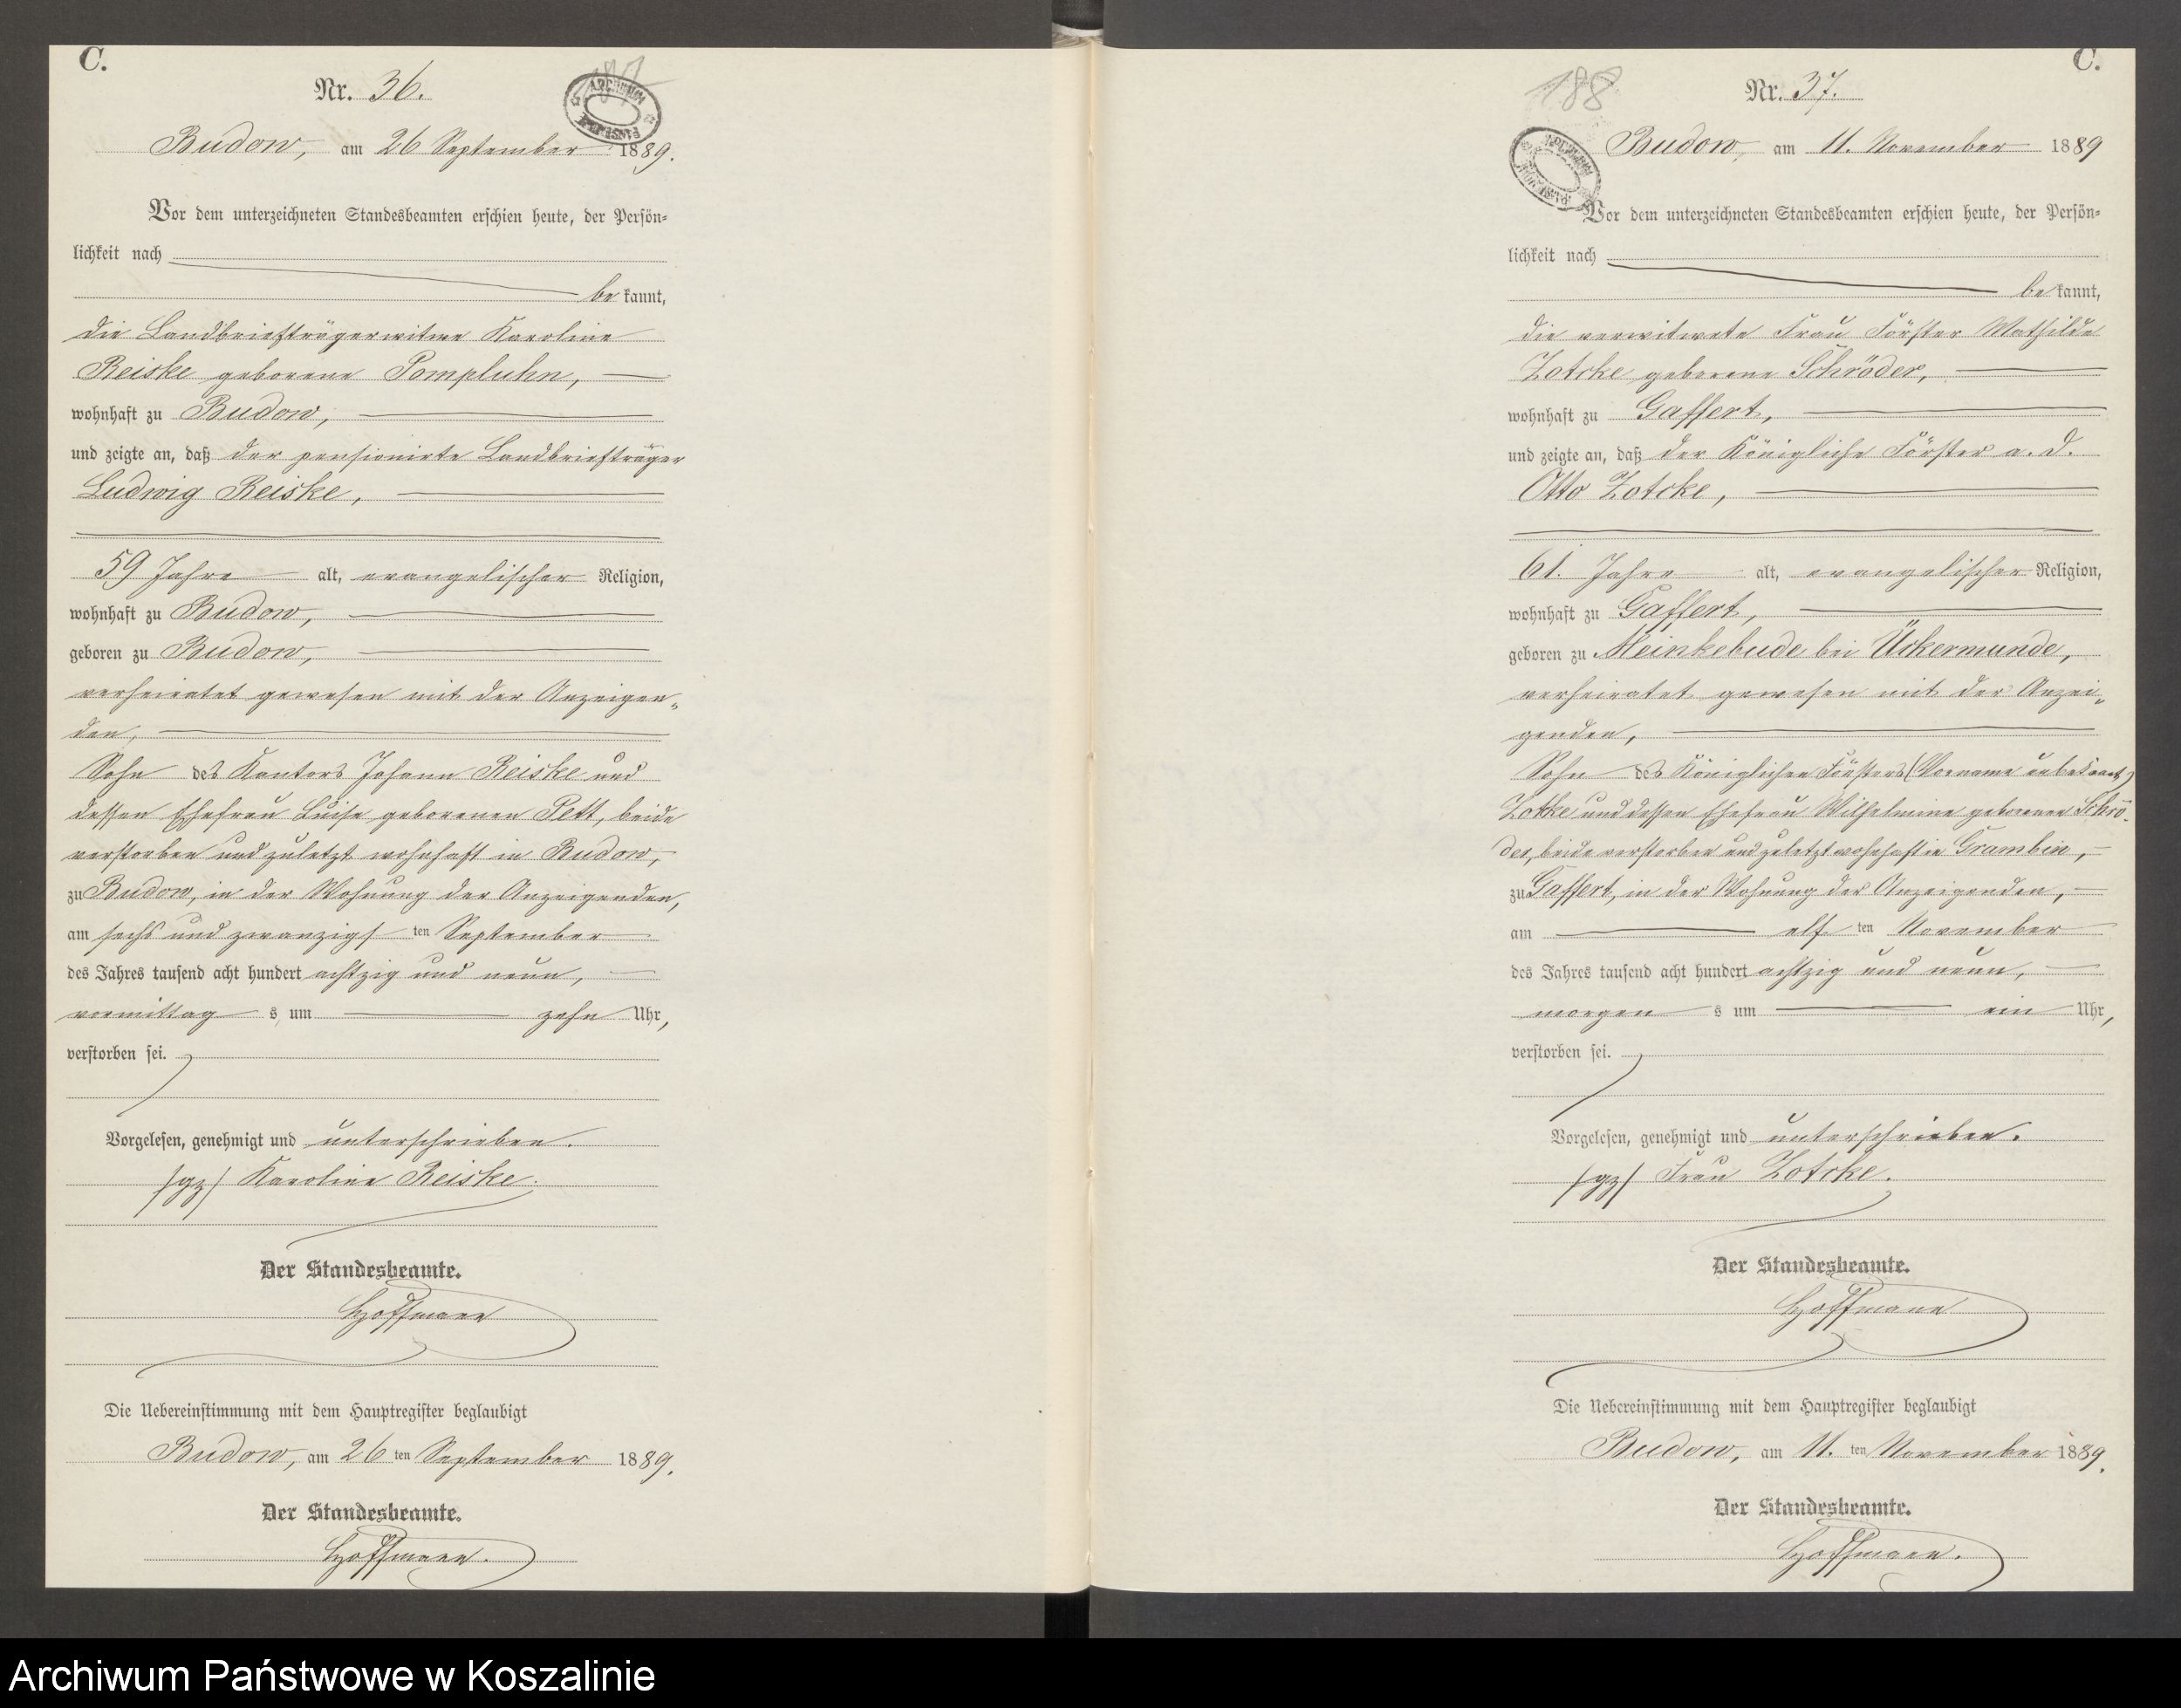 C.
Nr. 36.
Budow, am 26 September 1889.
Vor dem unterzeichneten Standesbeamten erschien heute, der Persön=
lichkeit nach
be kannt,
die Landbriefträgerwitwe Karoline
Reiske geborene Pompluhn,
wohnhaft zu Budow,
und zeigte an, daß der pensionirte Landbriefträger
Ludwig Reiske,
59 Jahre alt, evangelischer Religion,
wohnhaft zu Budow,
geboren zu Budow,
verheiratet gewesen mit der Anzeigen„
den,
Sohn des Kantors Johann Reiske und
dessen Ehefrau Luise geborenen Pett, beide
verstorben und zuletzt wohnhaft in Budow,
zu Budow, in der Wohnung der Anzeigenden,
am sechs und zwanzigs ten September
des Jahres tausend acht hundert achtzig und neun,
vormittag s um zehn Uhr,
verstorben sei.
Vorgelesen, genehmigt und unterschrieben.
/gz/ Karoline Reiske.
Der Standesbeamte.
Hoffmann
Die Uebereinstimmung mit dem Hauptregister beglaubigt
Budow, am 26 ten September 1889.
Der Standesbeamte.
Hoffmann.
C.
188
Nr. 37.
Budow, am 11. November 1889
Vor dem unterzeichneten Standesbeamten erschien heute, der Persön=
lichkeit nach
be kannt,
die verwitwete Frau Förster Mathilde
Zotcke geborene Schröder,
wohnhaft zu Gaffert,
und zeigte an, daß der Königliche Förster a. D.
Otto Zotcke,
61. Jahre alt, evangelischer Religion,
wohnhaft zu Gaffert,
geboren zu Meinkebude bei Ückermunde,
verheiratet gewesen mit der Anzei„
genden,
Sohn des Königlichen Försters (Vorname unbekannt)
Zotke und dessen Ehefrau Wilhelmine geborenen Schrö-
der, beide verstorben und zuletzt wohnhaft in Grambin,
zu Gaffert, in der Wohnung der Anzeigenden,
am elf ten November
des Jahres tausend acht hundert achtzig und neun,
morgen s um ein Uhr,
verstorben sei.
Vorgelesen, genehmigt und unterschrieben.
/gz/ Frau Zotcke.
Der Standesbeamte.
Hoffmann
Die Uebereinstimmung mit dem Hauptregister beglaubigt
Budow, am 11. ten November 1889.
Der Standesbeamte.
Hoffmann.
Archiwum Państwowe w Koszalinie